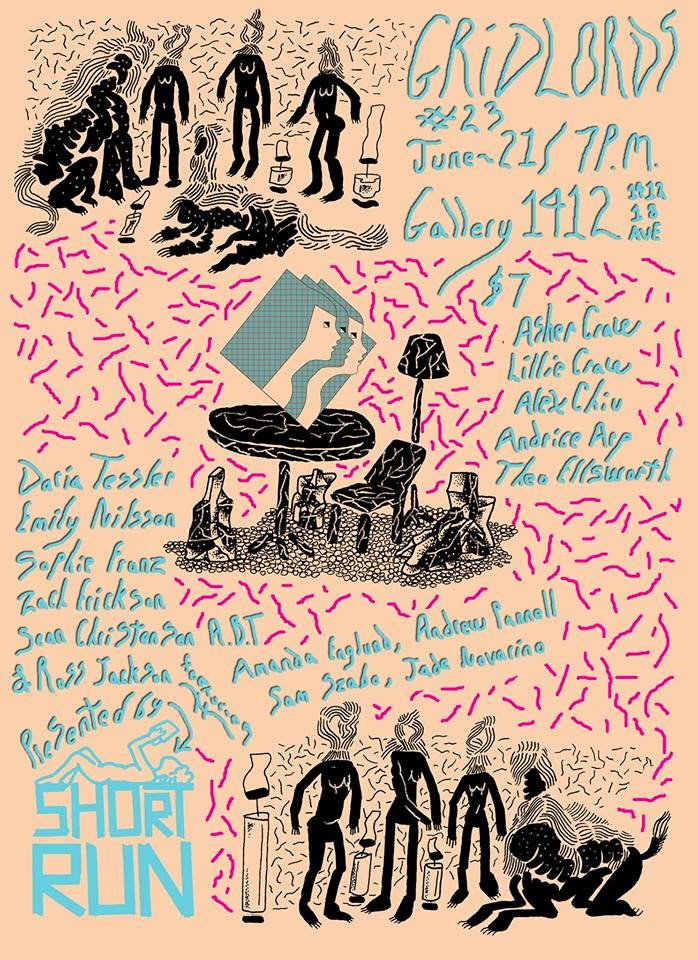 GRiDLORDS
#23
June 21/ 7P.M.
Gallery 1412
1412
18
AVE
$7
Asher Craw
Lillie Craw
Alex Chiu
Andrice Arp
Theo Ellsworth
Daria Tessler
Emily Nilsson
Sophie Franz
Zach Erickson
Sean Christensen A.B.T
& Ross Jackson featuring
Amanda Englund, Andrew Pannell
Sam Szabo, Jade Novarino
Presented by
SHORT
RUN